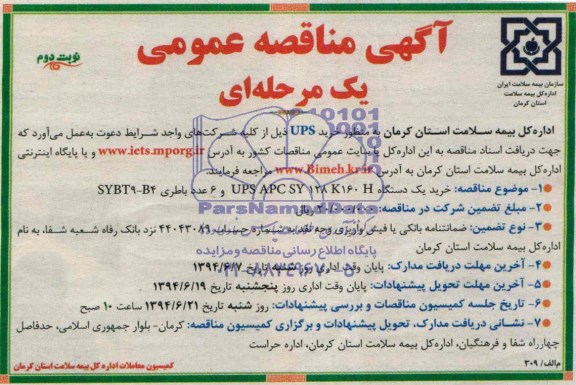 آگهی مناقصه عمومی
یک مرحله‌ای
نوبت دوم
سازمان بیمه سلامت ایران
اداره کل بیمه سلامت
استان کرمان
اداره کل بیمه سلامت استان کرمان به منظور خرید UPS ذیل از کلیه شرکت‌های واجد شرایط دعوت به‌عمل می‌آورد که
جهت دریافت اسناد مناقصه به این اداره کل یا سایت عمومی مناقصات کشور به آدرس www.iets.mporg.ir و یا پایگاه اینترنتی
اداره کل بیمه سلامت استان کرمان به آدرس www.Bimeh.kr.ir مراجعه فرمایند.
۱- موضوع مناقصه: خرید یک دستگاه UPS APC SY ۱۲۸ K۱۶۰ H و ۶ عدد باطری SYBT۹-B۴
۲- مبلغ تضمین شرکت در مناقصه: ریال
۳- نوع تضمین: ضمانتنامه بانکی یا فیش واریزی وجه نقد به شماره حساب ۴۴۰۴۳۰۸۹ نزد بانک رفاه شعبه شفا، به نام
اداره کل بیمه سلامت استان کرمان
۴- آخرین مهلت دریافت مدارک: پایان وقت اداری روز شنبه تاریخ ۱۳۹۴/۶/۷
۵- آخرین مهلت تحویل پیشنهادات: پایان وقت اداری روز پنجشنبه تاریخ ۱۳۹۴/۶/۱۹
۶- تاریخ جلسه کمیسیون مناقصات و بررسی پیشنهادات: روز شنبه تاریخ ۱۳۹۴/۶/۲۱ ساعت ۱۰ صبح
۷- نشانی دریافت مدارک، تحویل پیشنهادات و برگزاری کمیسیون مناقصه: کرمان- بلوار جمهوری اسلامی، حدفاصل
چهارراه شفا و فرهنگیان، اداره کل بیمه سلامت استان کرمان، اداره حراست
م‌الف/ ۳۰۹
کمیسیون معاملات اداره کل بیمه سلامت استان کرمان
ParsNamadData
پایگاه اطلاع رسانی مناقصه و مزایده